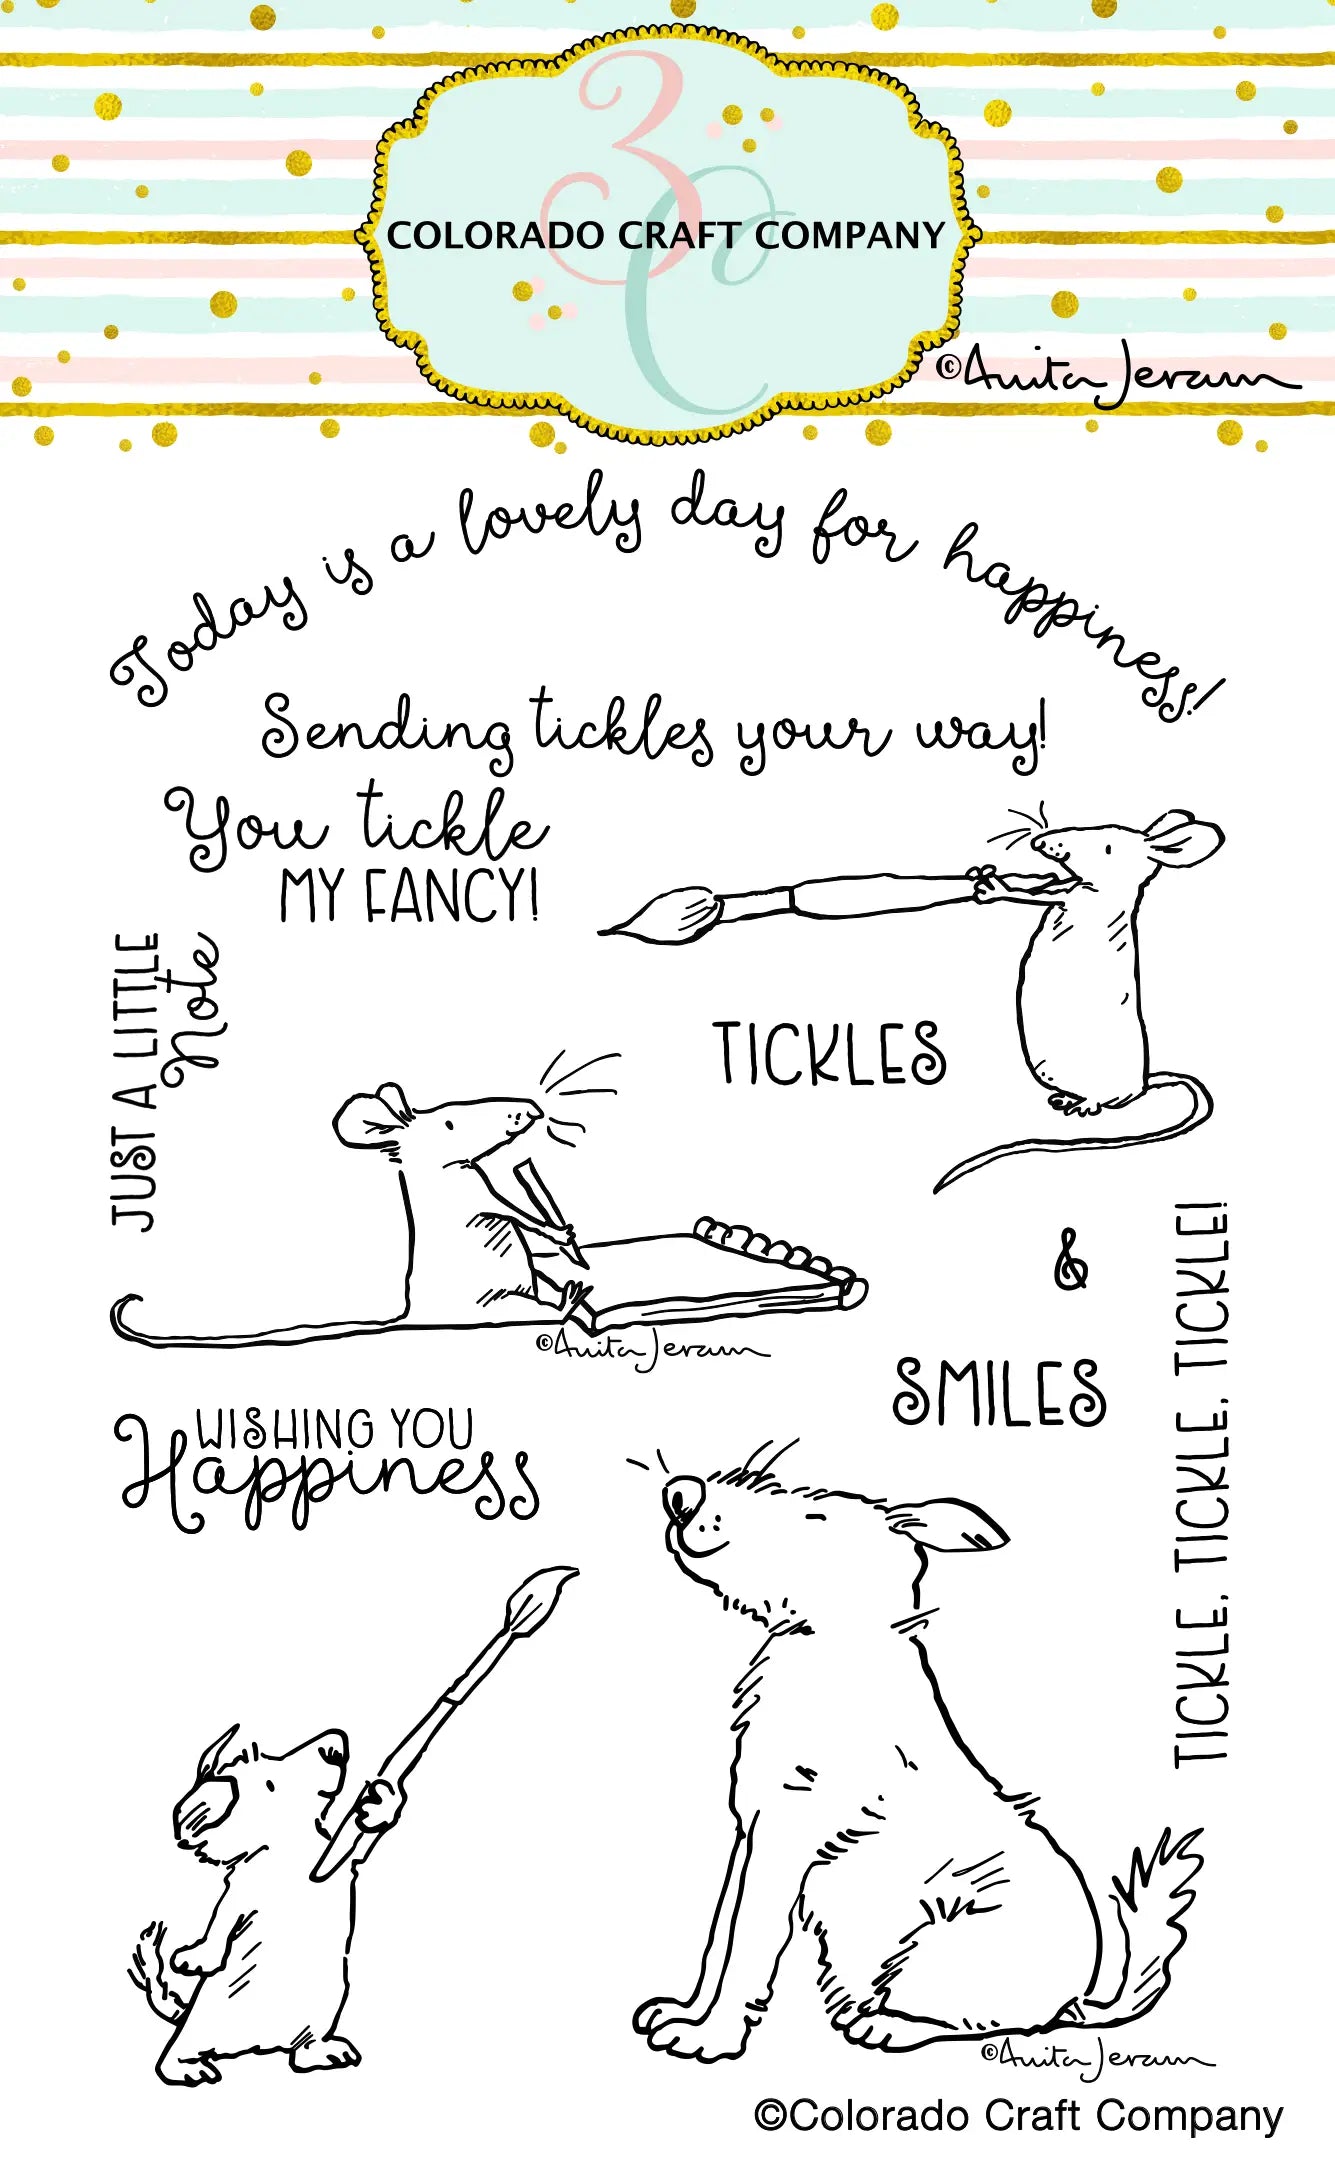 3C
COLORADO CRAFT COMPANY
©Anita Jeram
Today is a lovely day for happiness!
Sending tickles your way!
You tickle
MY FANCY!
JUST A LITTLE
Note
TICKLES
&
SMILES
TICKLE, TICKLE, TICKLE!
©Anita Jeram
WISHING YOU
Happiness
©Anita Jeram
©Colorado Craft Company